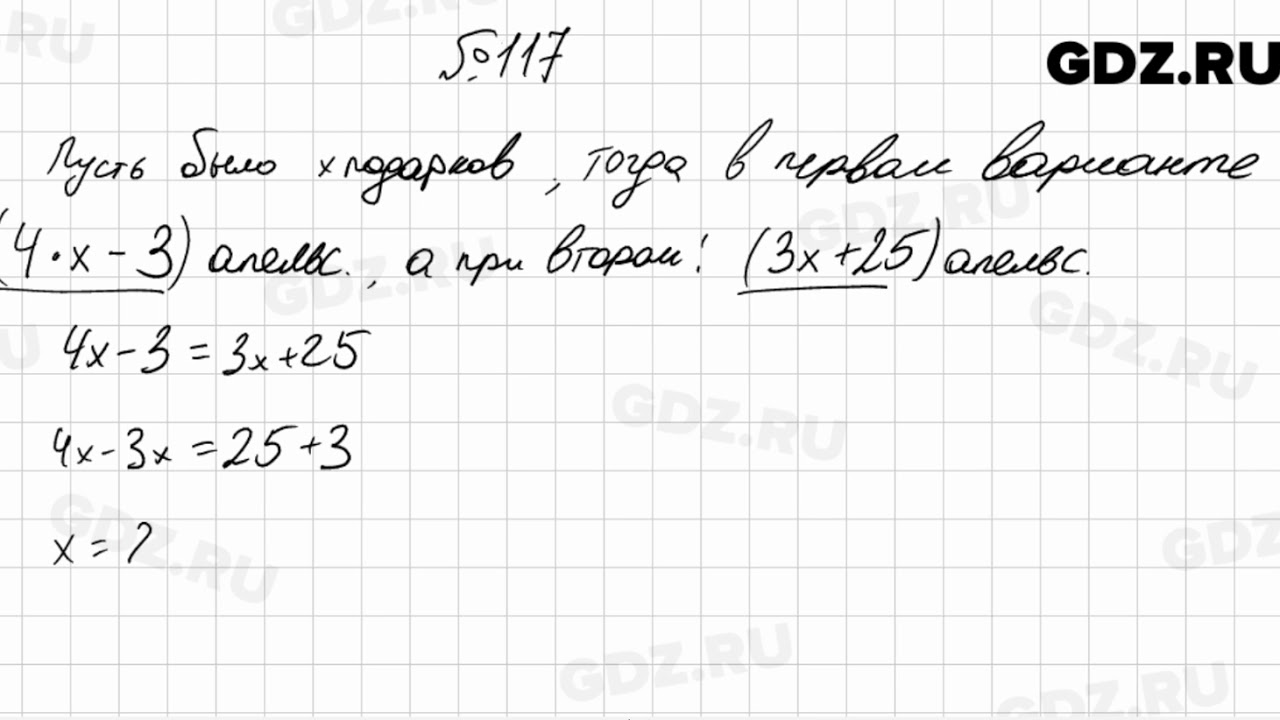 №117
GDZ.RU
Пусть было x подарков, тогда в первом варианте
(4·x-3) апельс., а при втором: (3x+25) апельс.
4x-3=3x+25
4x-3x=25+3
x=2